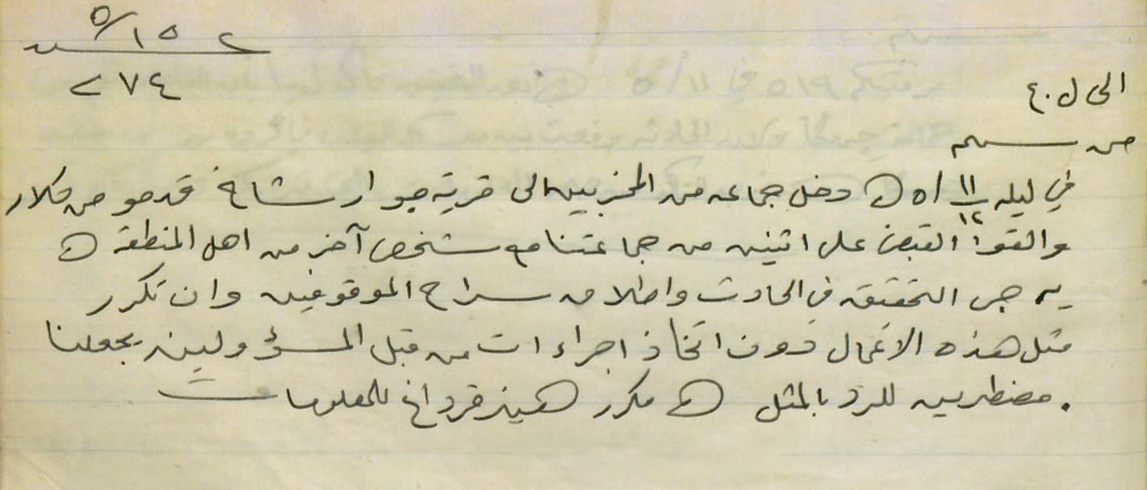 ١٥ / ٥
٢٧٤
الى ل.ع
من
في ليله ١١/١٢ /٥ ه دخل جماعه من الحزبيين الى قرية جوار شاخ قدموا من كلار
والقوا القبض على اثنين من جماعتنا مع شخص آخر من اهل المنطقة ه
يرجى التحقيق في الحادث واطلاق سراح الموقوفين وان تكرر
مثل هذه الاعمال دون اتخاذ اجراءات من قبل المسؤولين يجعلنا
مضطرين للرد بالمثل ه مكرر هيز قرداغ للمعلومات